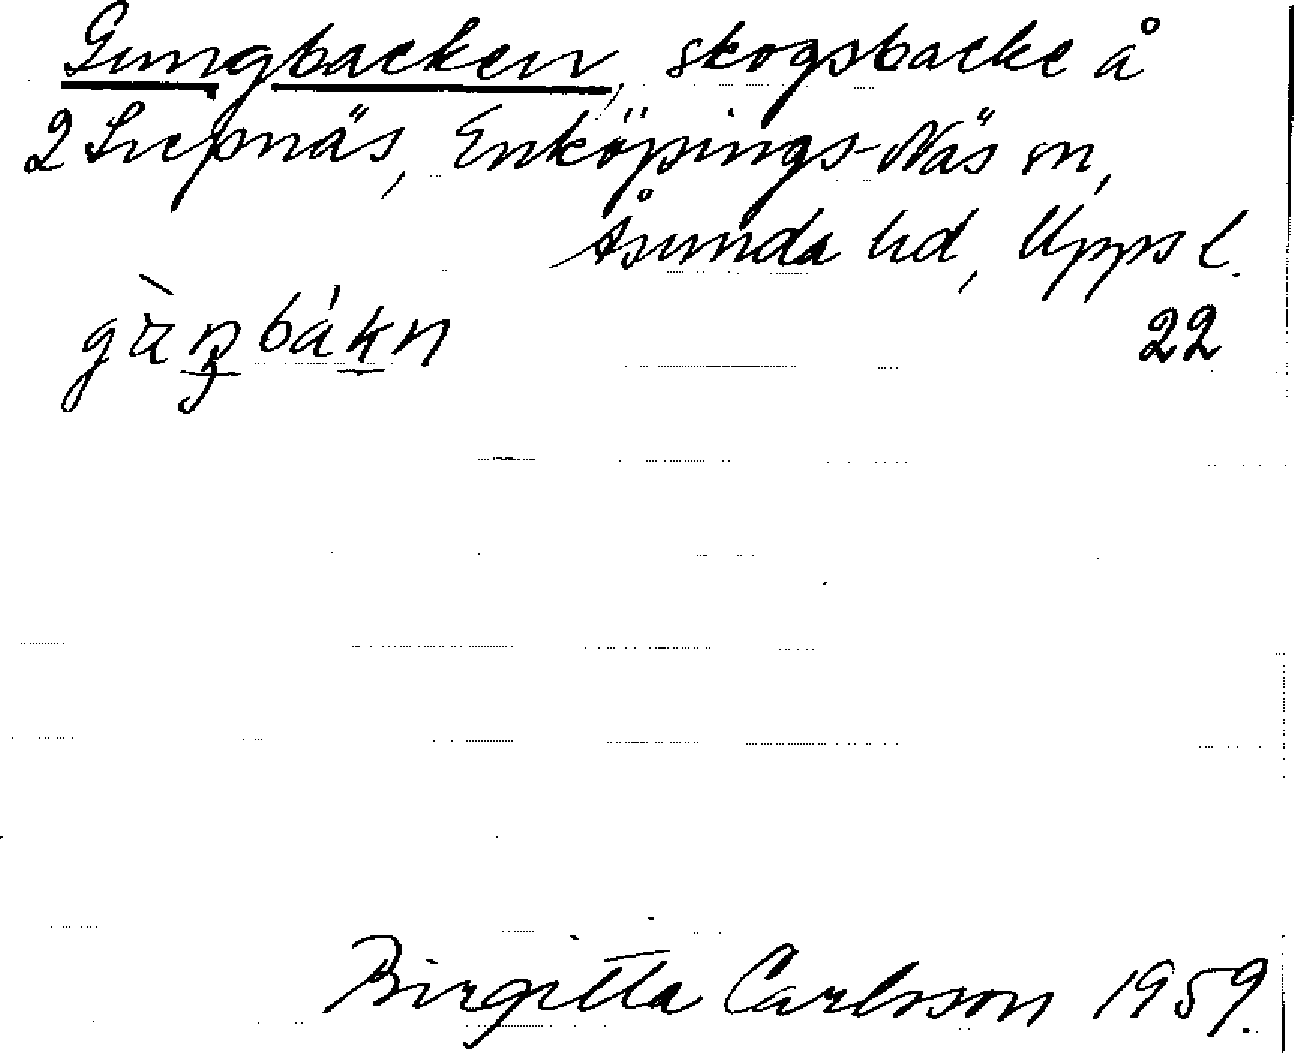 Gungbacken, skogsbacke å
2 Svepnäs, Enköpings-Näs sn,
Åsunda hd, Uppsl.
22
Birgitta Carlsson 1959.